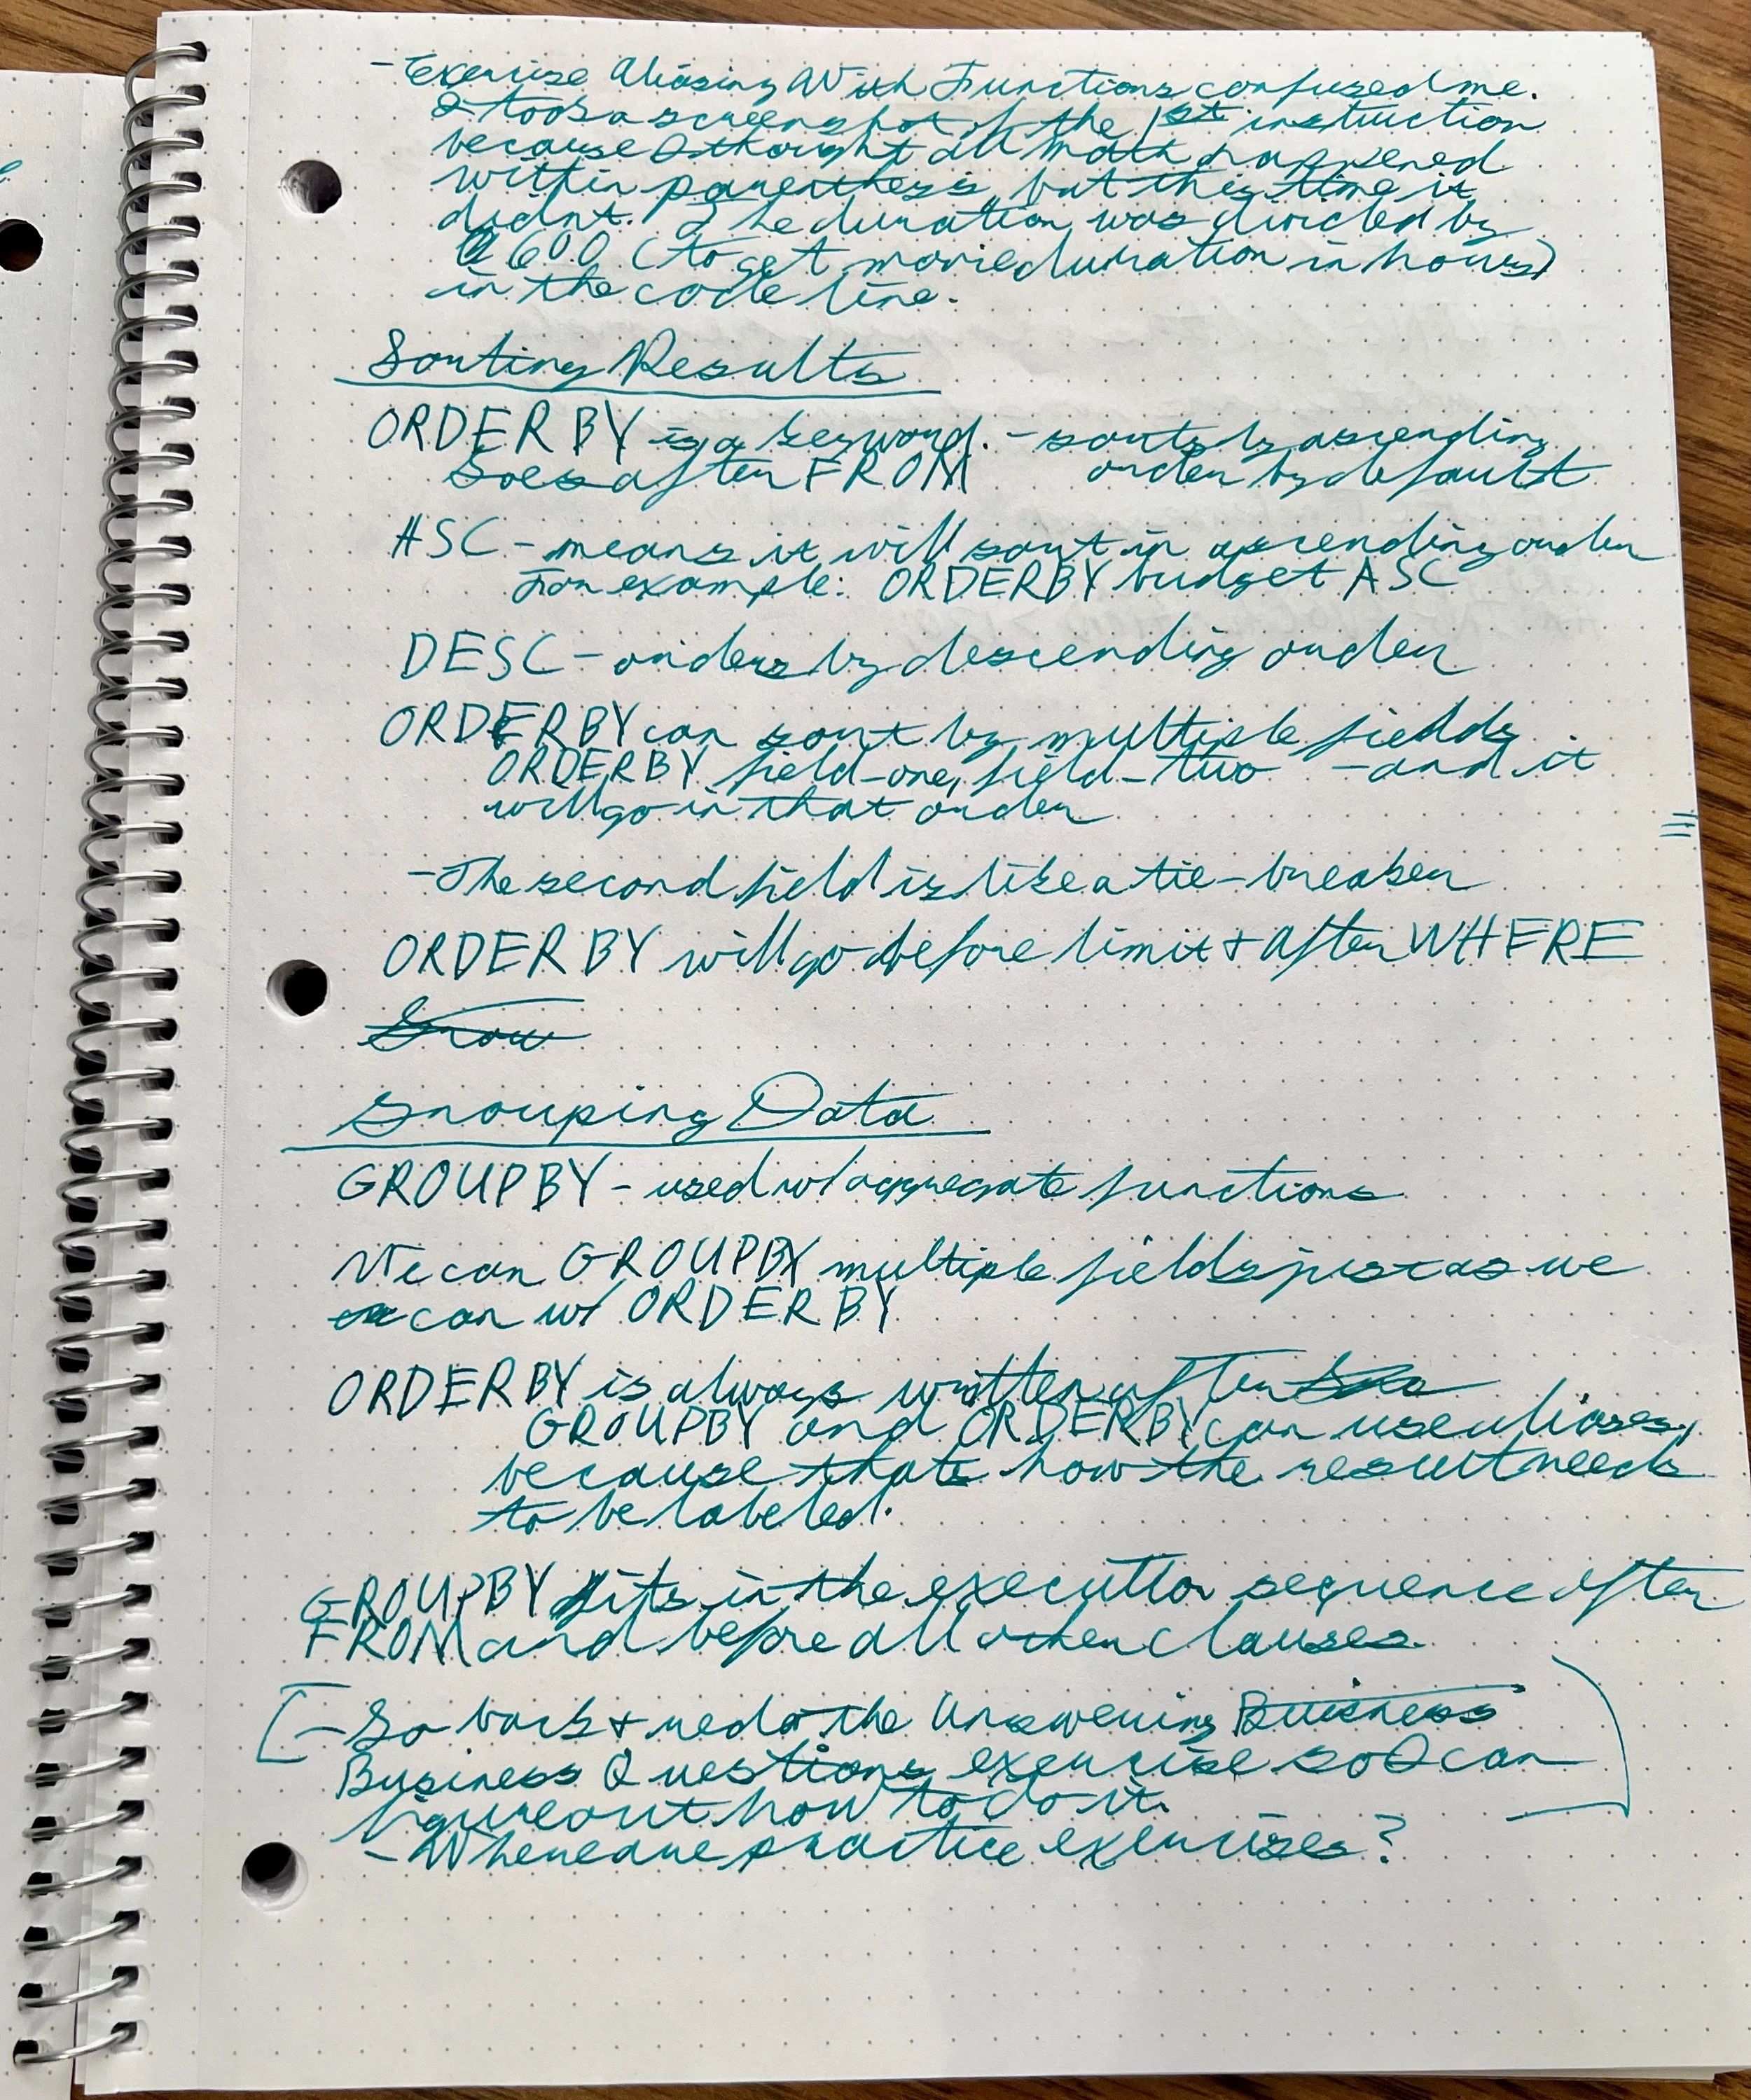 - Exercise Aliasing With Functions confused me.
I took a screenshot of the 1st instruction
because I thought all math happened
within parenthesis, but this time it
didnt. The duration was divided by
600 (to get movie duration in hours)
in the code line.
Sorting Results
ORDER BY is a keyword. - sorts by ascending
Goes after FROM order by default
ASC - means it will sort in ascending order
For example: ORDER BY budget ASC
DESC - orders by descending order
ORDER BY can sort by multiple fields
ORDER BY field_one, field_two - and it
will go in that order
- The second field is like a tie-breaker
ORDER BY will go before limit & after WHERE
Grou
Grouping Data
GROUP BY - used w/ aggregate functions
We can GROUP BY multiple fields just as we
can w/ ORDER BY
ORDER BY is always written after
GROUP BY and ORDER BY can use aliases,
because thats how the result needs
to be labeled.
GROUP BY fits in the execution sequence after
FROM and before all other clauses.
- Go back & redo the Answering Buisness
Business Questions exercise so I can
figure out how to do it.
- Where are practice exercises?